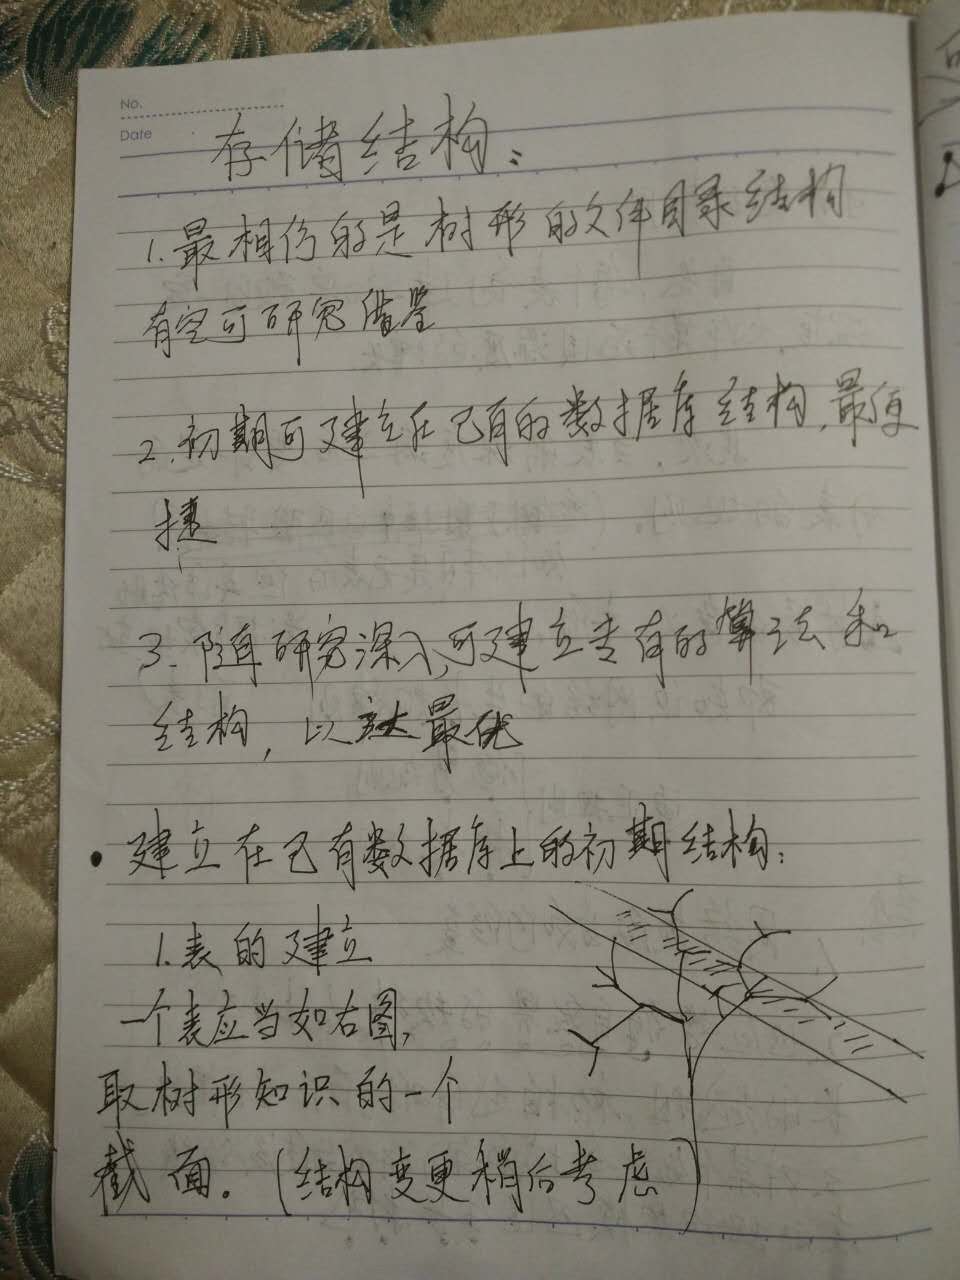 No.
Date
存储结构：
1.最相仿的是树形的文件目录结构
有空可研究借鉴
2.初期可建立在已有的数据库结构,最便
捷
3.随研究深入,可建立专有的算法和
结构,以达最优
• 建立在已有数据库上的初期结构：
1.表的建立
一个表应当如右图,
取树形知识的一个
截面。(结构变更稍后考虑)